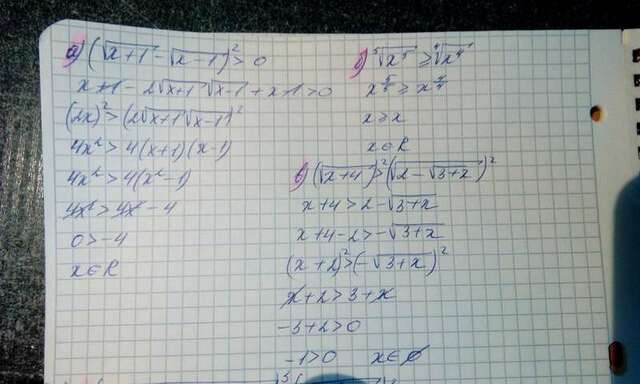 а) (√(x+1) - √(x-1))² > 0
x+1 - 2√(x+1) √(x-1) + x-1 > 0
(2x)² > (2√(x+1) √(x-1))²
4x² > 4(x+1)(x-1)
4x² > 4(x²-1)
4x² > 4x² - 4
0 > -4
x∈R
⁵√(x⁵) ≥ ⁴√(x⁴)
x ≥ x
x∈R
в) (√(x+4))² > (√(2-√(3+x)))²
x+4 > 2-√(3+x)
x+4-2 > -√(3+x)
(x+2)² > (-√(3+x))²
x+2 > 3+x
-3+2 > 0
-1 > 0 x∈∅